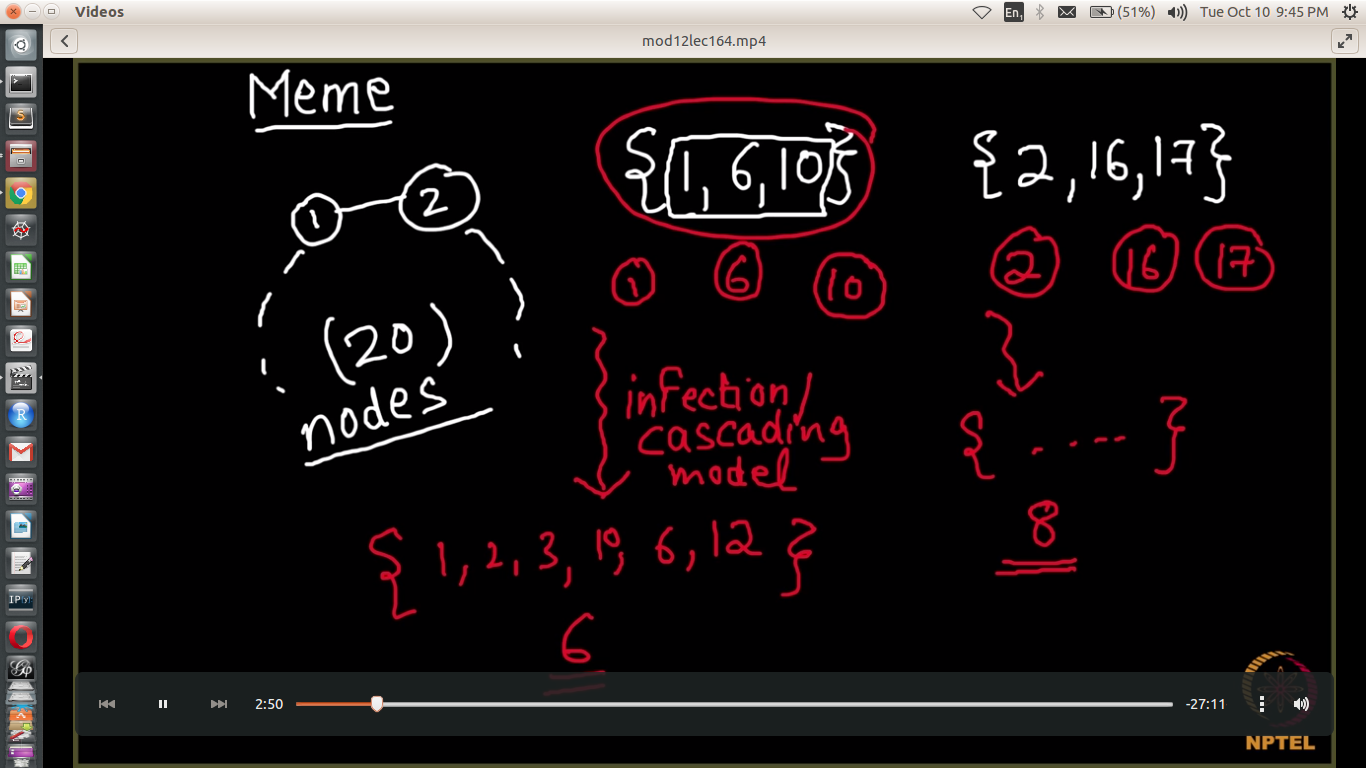 Videos
En1
(51%)
Tue Oct 10 9:45 PM
mod12lec164.mp4
Meme
1 2
(20)
nodes
{1, 6, 10}
1 6 10
infection/
cascading
model
{ 1, 2, 3, 10, 6, 12 }
6
{ 2, 16, 17 }
2 16 17
{ . . -- }
8
2:50
-27:11
NPTEL